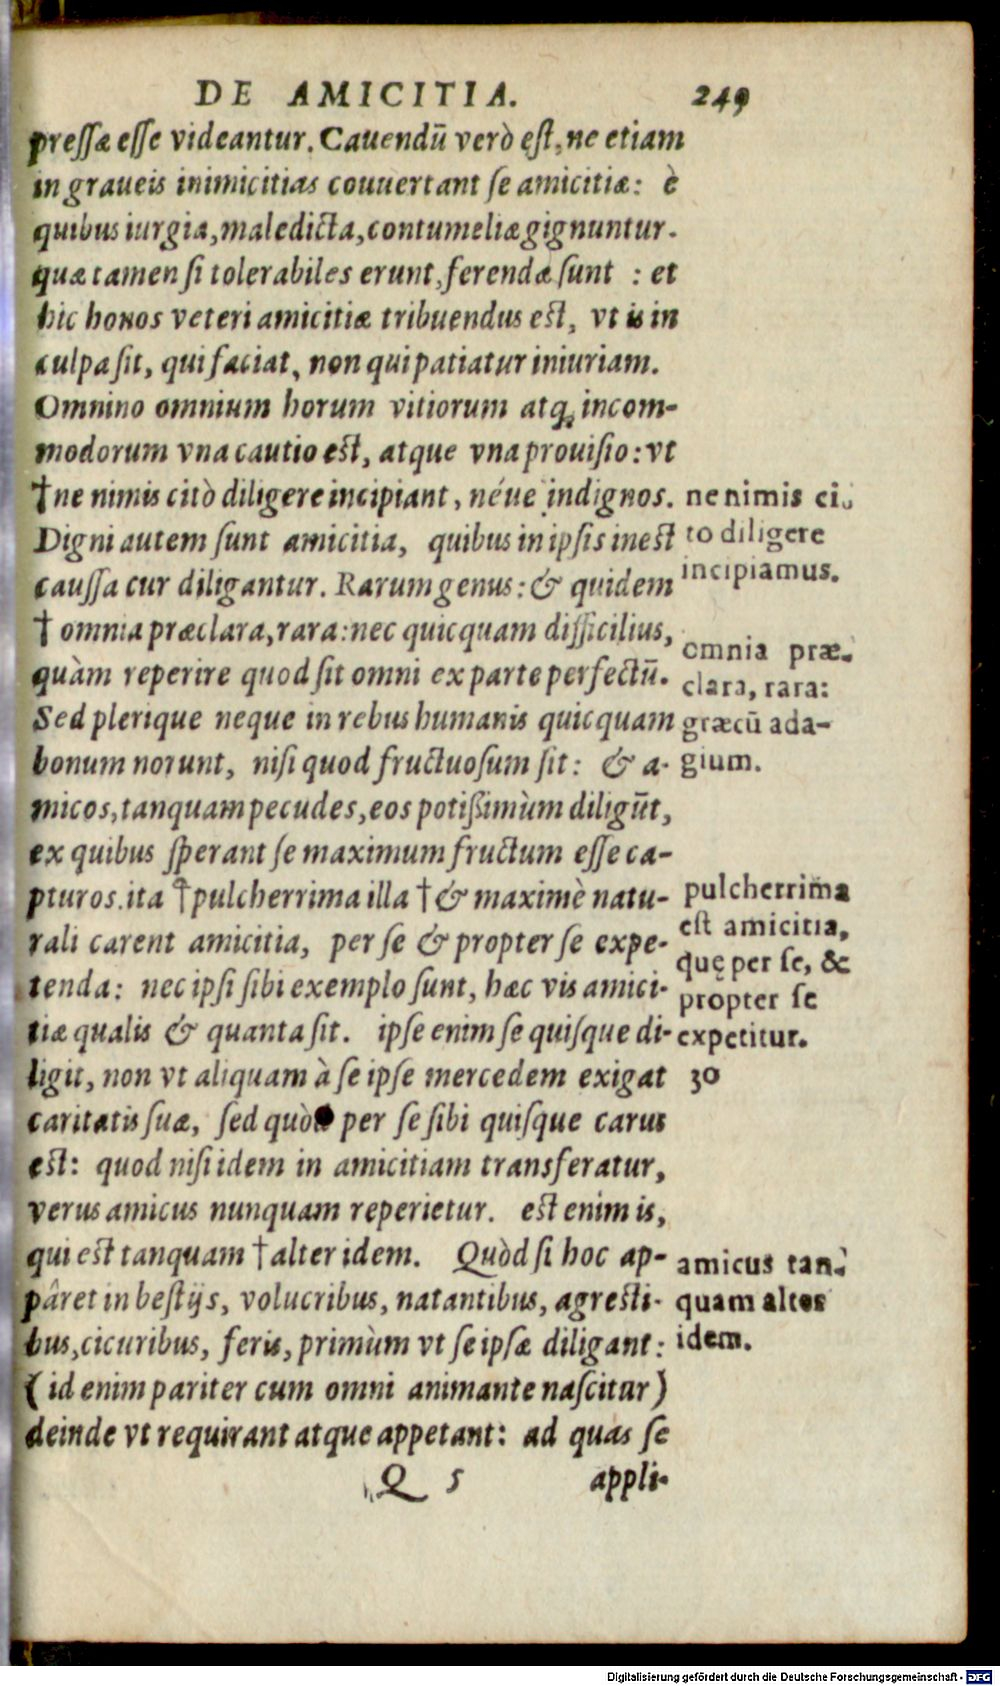 DE AMICITIA. 249
pressæ esse videantur. Cauendū verò est, ne etiam
in graueis inimicitias couuertant se amicitiæ: è
quibus iurgia, maledicta, contumeliæ gignuntur.
quæ tamen si tolerabiles erunt, ferendæ sunt : et
hic honos veteri amicitiæ tribuendus est, vt is in
culpa sit, qui faciat, non qui patiatur iniuriam.
Omnino omnium horum vitiorum atq; incom-
modorum vna cautio est, atque vna prouisio: vt
†ne nimis citò diligere incipiant, néue indignos.
Digni autem sunt amicitia, quibus in ipsis inest
caussa cur diligantur. Rarum genus: & quidem
† omnia præclara, rara: nec quicquam difficilius,
quàm reperire quod sit omni ex parte perfectū.
Sed plerique neque in rebus humanis quicquam
bonum norunt, nisi quod fructuosum sit: & a-
micos, tanquam pecudes, eos potißimùm diligūt,
ex quibus sperant se maximum fructum esse ca-
pturos. ita †pulcherrima illa † & maximè natu-
rali carent amicitia, per se & propter se expe-
tenda: nec ipsi sibi exemplo sunt, hæc vis amici-
tiæ qualis & quanta sit. ipse enim se quisque di-
ligit, non vt aliquam à se ipse mercedem exigat
caritatis suæ, sed quòd per se sibi quisque carus
est: quod nisi idem in amicitiam transferatur,
verus amicus nunquam reperietur. est enim is,
qui est tanquam †alter idem. Quòd si hoc ap-
pâret in bestijs, volucribus, natantibus, agresti-
bus, cicuribus, feris, primùm vt se ipsæ diligant:
(id enim pariter cum omni animante nascitur)
deinde vt requirant atque appetant: ad quas se
Q 5 appli-
ne nimis ci-
to diligere
incipiamus.
omnia præ-
clara, rara:
græcū ada-
gium.
pulcherrima
est amicitia,
quę per se, &
propter se
expetitur.
30
amicus tan-
quam alter
idem.
Digitalisierung gefördert durch die Deutsche Forschungsgemeinschaft - DFG